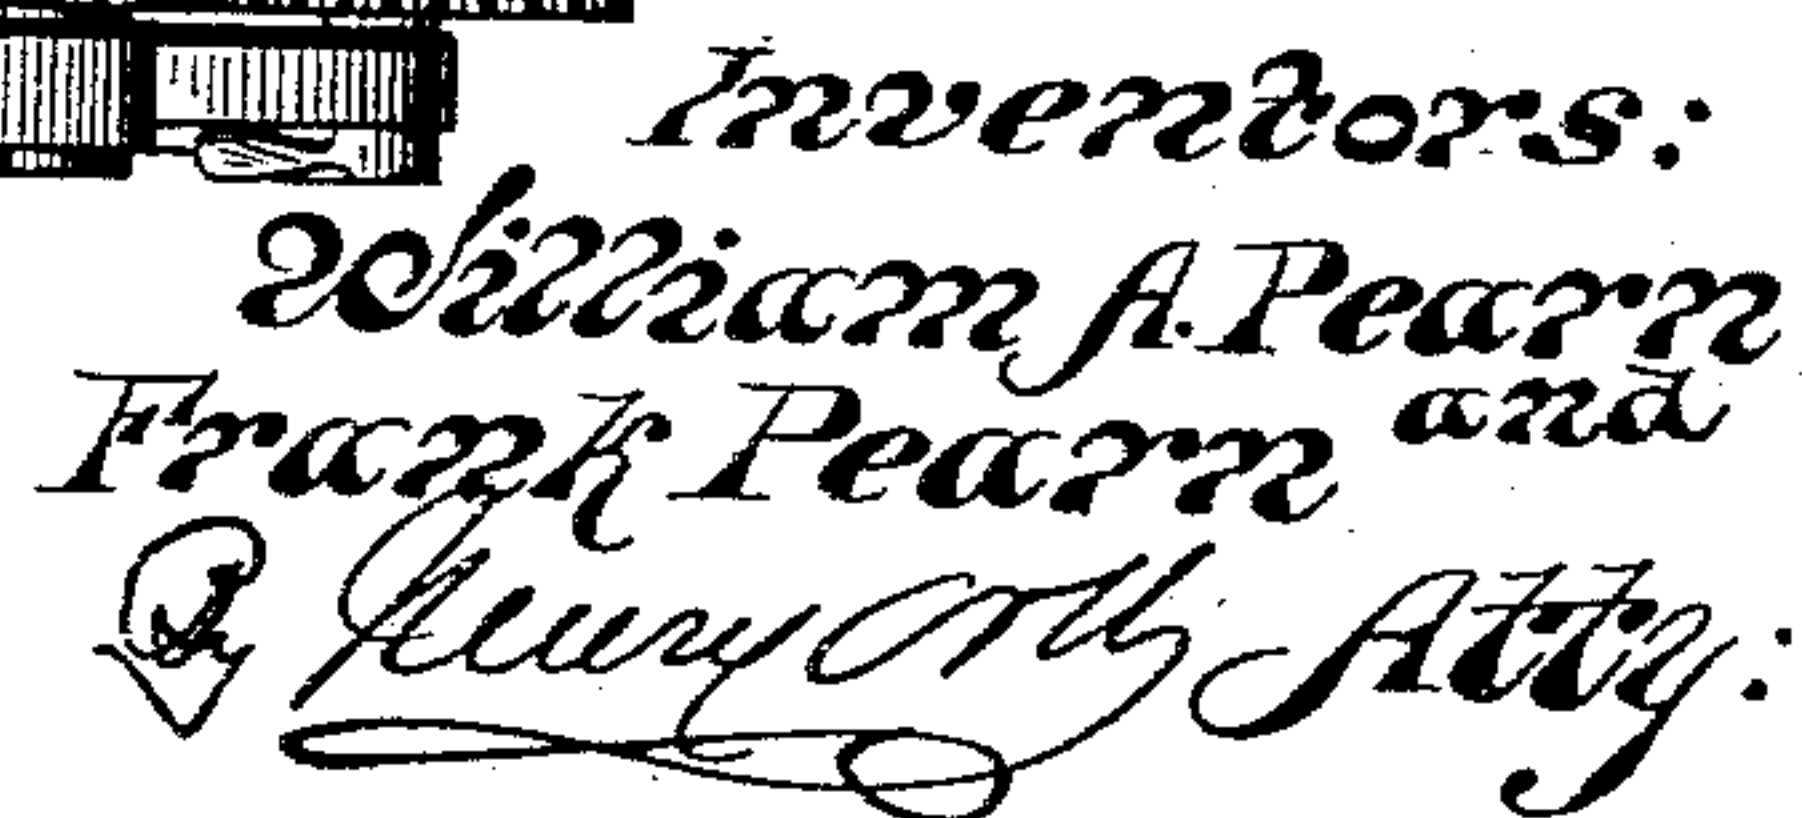 Inventors:
William A. Pearn
and
Frank Pearn
By Henry Orth Atty: